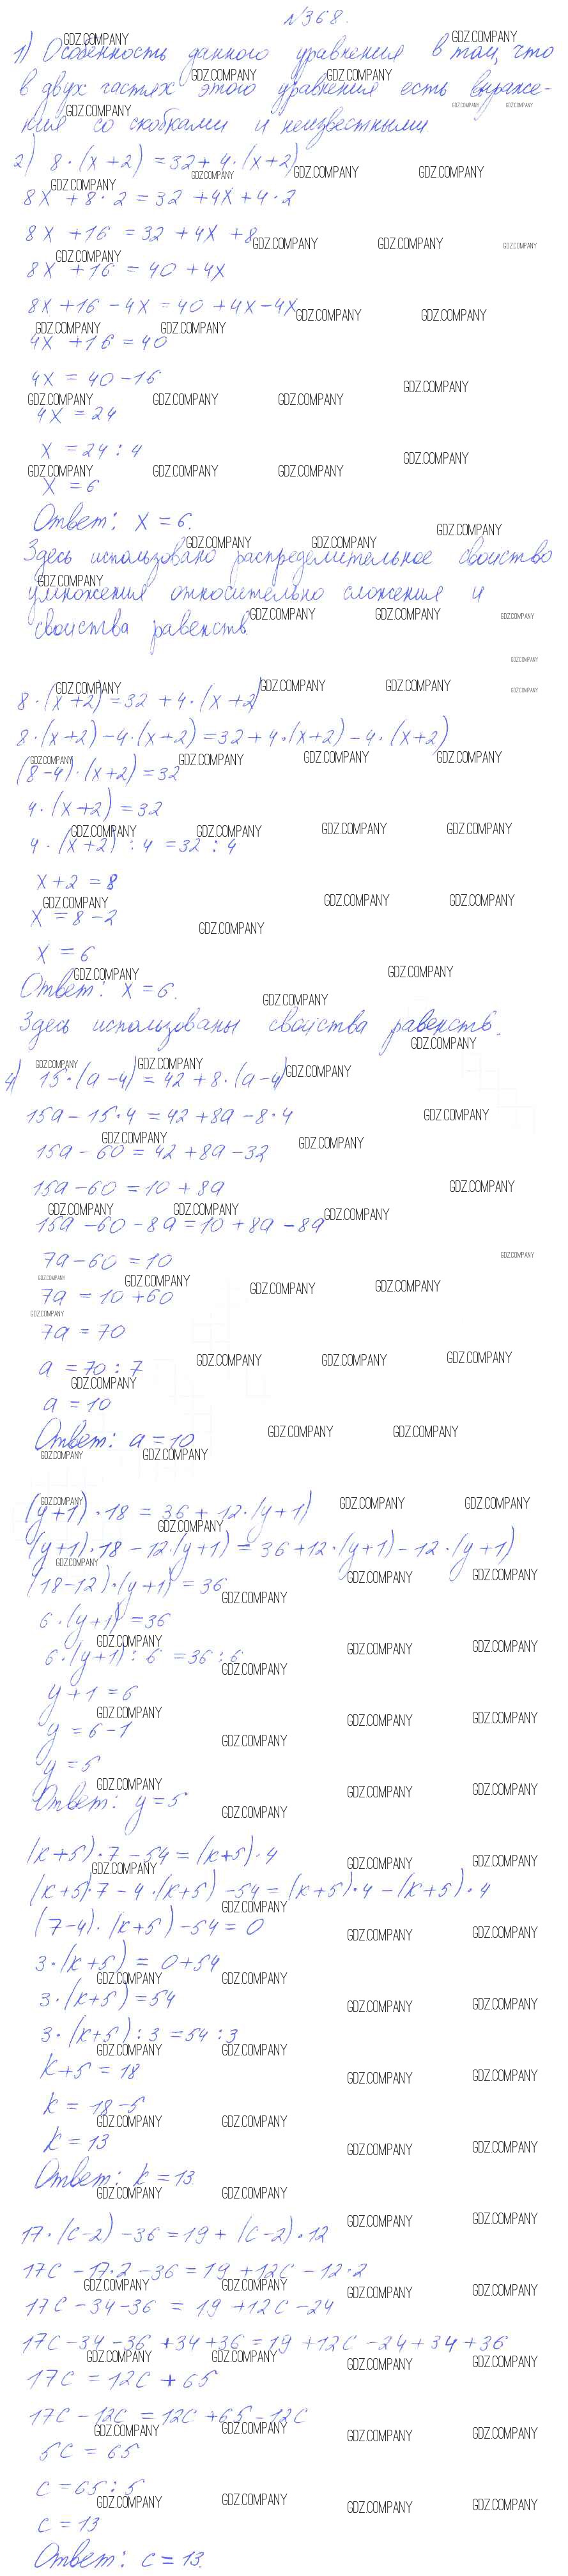 №368.
1) Особенность данного уравнения в том, что
в двух частях этого уравнения есть выраже-
ния со скобками и неизвестными
2) 8·(x+2)=32+4·(x+2)
8x+8·2=32+4x+4·2
8x+16=32+4x+8
8x+16=40+4x
8x+16-4x=40+4x-4x
4x+16=40
4x=40-16
4x=24
x=24:4
x=6
Ответ: x=6.
Здесь использовано распределительное свойство
умножения относительно сложения и
свойства равенств.
8·(x+2)=32+4·(x+2)
8·(x+2)-4·(x+2)=32+4·(x+2)-4·(x+2)
(8-4)·(x+2)=32
4·(x+2)=32
4·(x+2):4=32:4
x+2=8
x=8-2
x=6
Ответ: x=6.
Здесь использованы свойства равенств.
4) 15·(a-4)=42+8·(a-4)
15a-15·4=42+8a-8·4
15a-60=42+8a-32
15a-60=10+8a
15a-60-8a=10+8a-8a
7a-60=10
7a=10+60
7a=70
a=70:7
a=10
Ответ: a=10
(y+1)·18=36+12·(y+1)
(y+1)·18-12·(y+1)=36+12·(y+1)-12·(y+1)
(18-12)·(y+1)=36
6·(y+1)=36
6·(y+1):6=36:6
y+1=6
y=6-1
y=5
Ответ: y=5
(k+5)·7-54=(k+5)·4
(k+5)·7-4·(k+5)-54=(k+5)·4-(k+5)·4
(7-4)·(k+5)-54=0
3·(k+5)=0+54
3·(k+5)=54
3·(k+5):3=54:3
k+5=18
k=18-5
k=13
Ответ: k=13
17·(c-2)-36=19+(c-2)·12
17c-17·2-36=19+12c-12·2
17c-34-36=19+12c-24
17c-34-36+34+36=19+12c-24+34+36
17c=12c+65
17c-12c=12c+65-12c
5c=65
c=65:5
c=13
Ответ: c=13.
GDZ.COMPANY